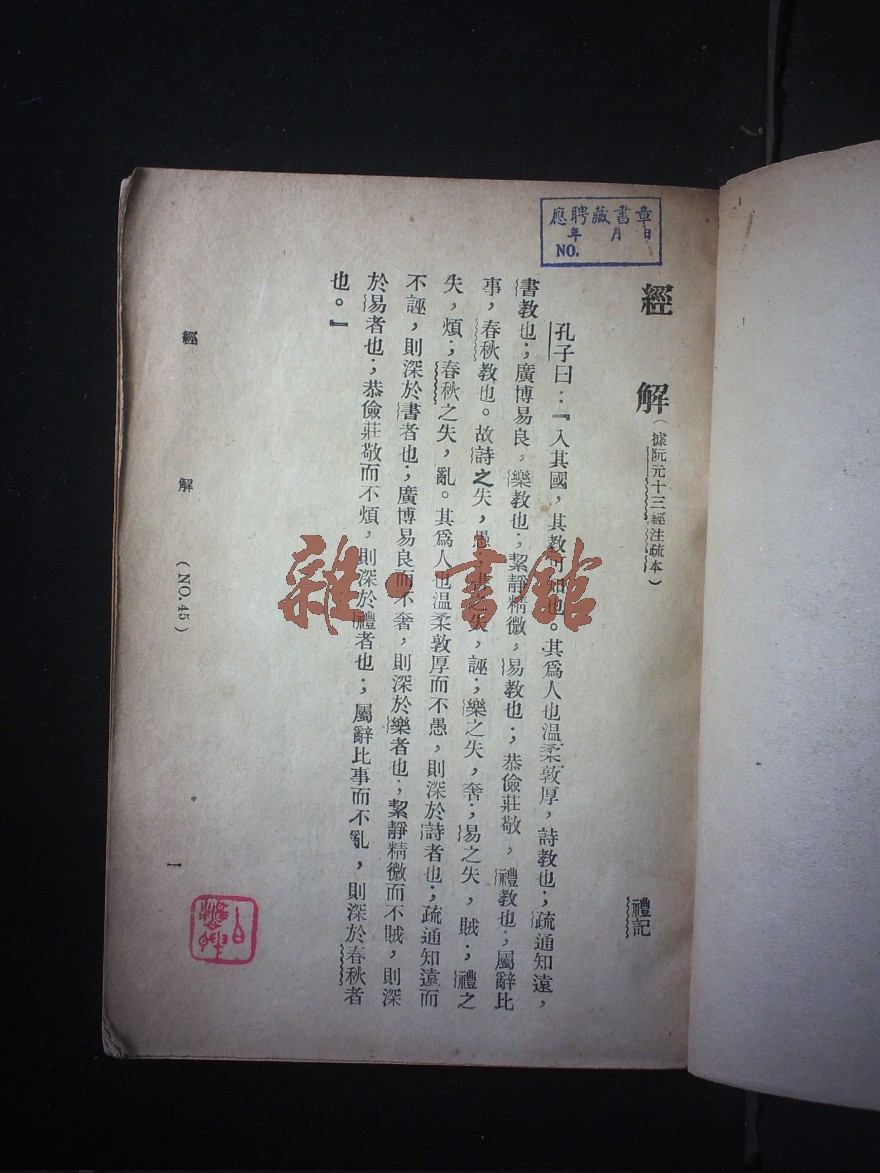 應聘藏書章
年 月 日
NO.
經 解(據阮元十三經注疏本)
禮記
孔子曰:『入其國,其教可知也。其爲人也温柔敦厚,詩教也;疏通知遠,
書教也;廣博易良,樂教也;絜靜精微,易教也;恭儉莊敬,禮教也;屬辭比
事,春秋教也。故詩之失,愚;書之失,誣;樂之失,奢;易之失,賊;禮之
失,煩;春秋之失,亂。其爲人也温柔敦厚而不愚,則深於詩者也;疏通知遠而
不誣,則深於書者也;廣博易良而不奢,則深於樂者也;絜靜精微而不賊,則深
於易者也;恭儉莊敬而不煩,則深於禮者也;屬辭比事而不亂,則深於春秋者
也。』
經 解 (NO.45) 一
雜·書館